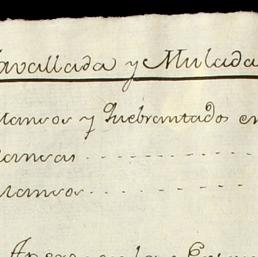 Cavallada y Mulada
Mansos y Quebrantados en
Mansas
Mansos